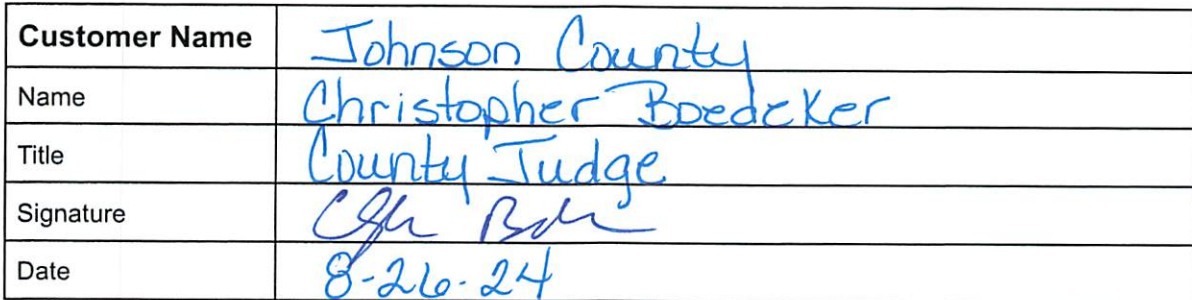 Customer Name Johnson County
Name Christopher Boedeker
Title County Judge
Signature
Date 8-26-24